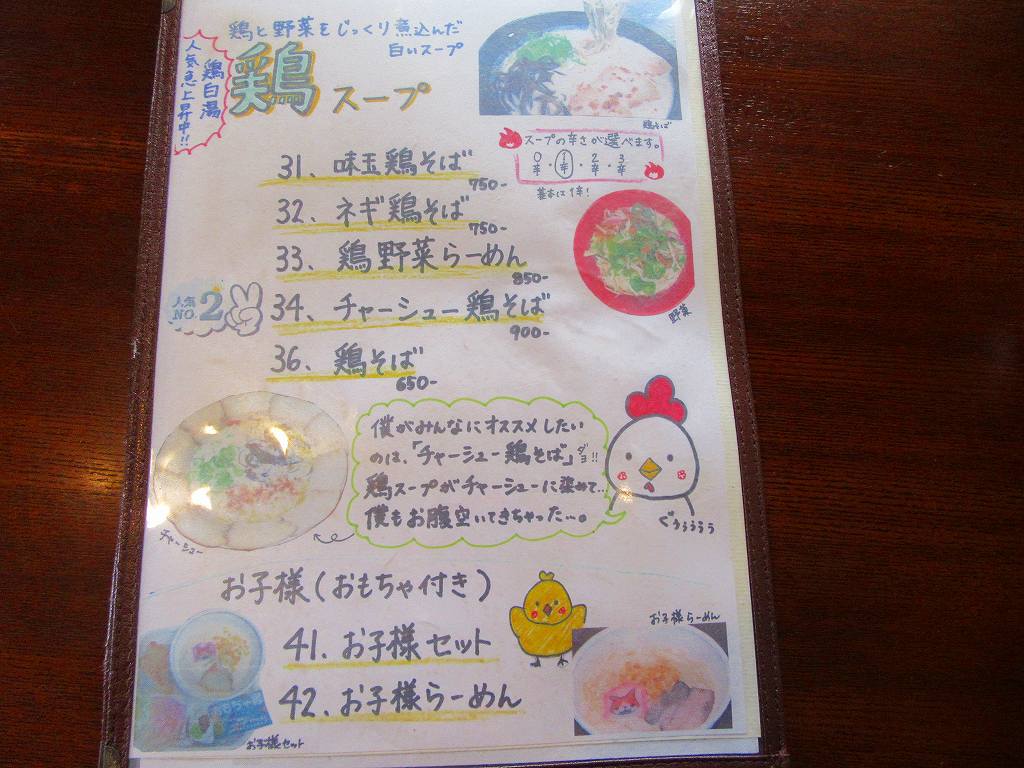 鶏と野菜をじっくり煮込んだ
白いスープ
鶏白湯
人気急上昇中!!
鶏スープ
鶏そば
スープの辛さが選べます。
0辛・1辛・2辛・3辛
基本は1辛!
31、味玉鶏そば
750-
32、ネギ鶏そば
750-
33、鶏野菜らーめん
850-
野菜
人気NO.2
34、チャーシュー鶏そば
900-
36、鶏そば
650-
僕がみんなにオススメしたい
のは、「チャーシュー鶏そば」ダヨ!!
鶏スープがチャーシューに染みて…
僕もお腹空いてきちゃった…。
ぐぅぅぅぅぅ
チャーシュー
お子様(おもちゃ付き)
41、お子様セット
42、お子様らーめん
お子様らーめん
お子様セット